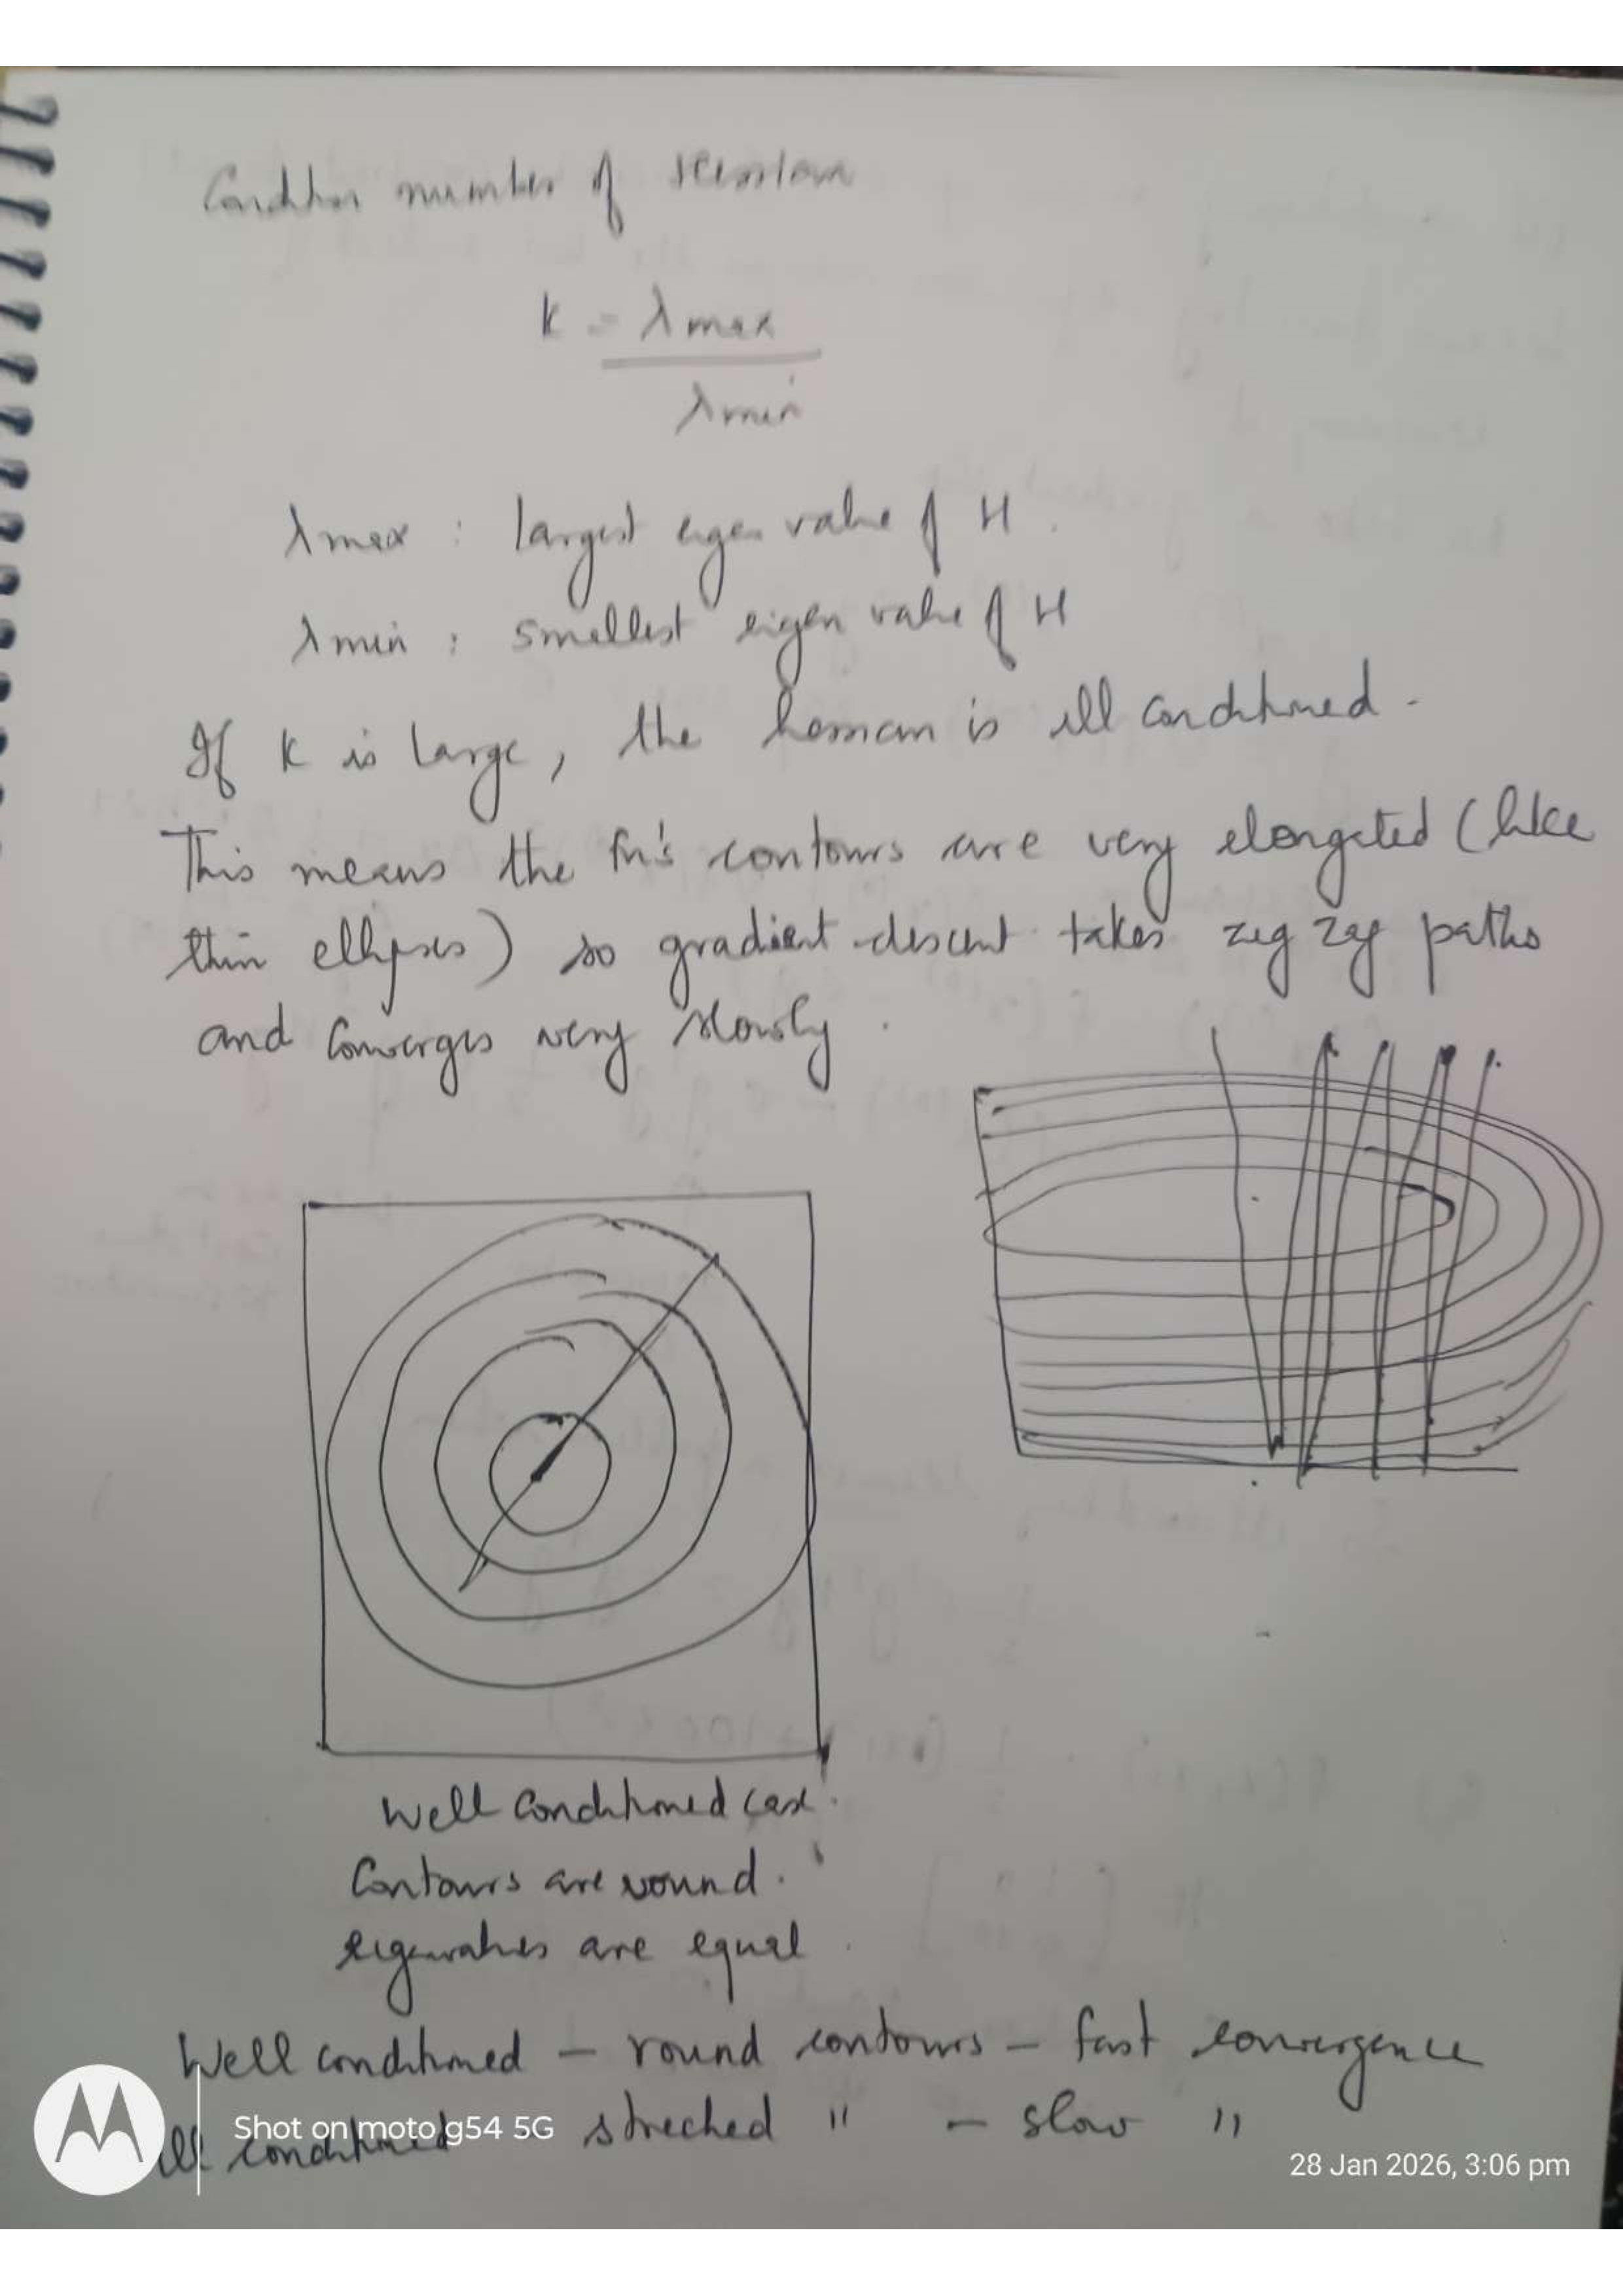 Condition number of Hessian
k = λmax
λmin
λmax : largest eigen value of H.
λmin : smallest eigen value of H
If k is large, the hessian is ill conditioned.
This means the fn's contours are very elongated (like
thin ellipses) so gradient descent takes zig zag paths
and converges very slowly.
Well conditioned case.
Contours are round.
eigenvalues are equal.
Well conditioned – round contours – fast convergence
ill conditioned streched " – slow "
Shot on moto g54 5G
28 Jan 2026, 3:06 pm